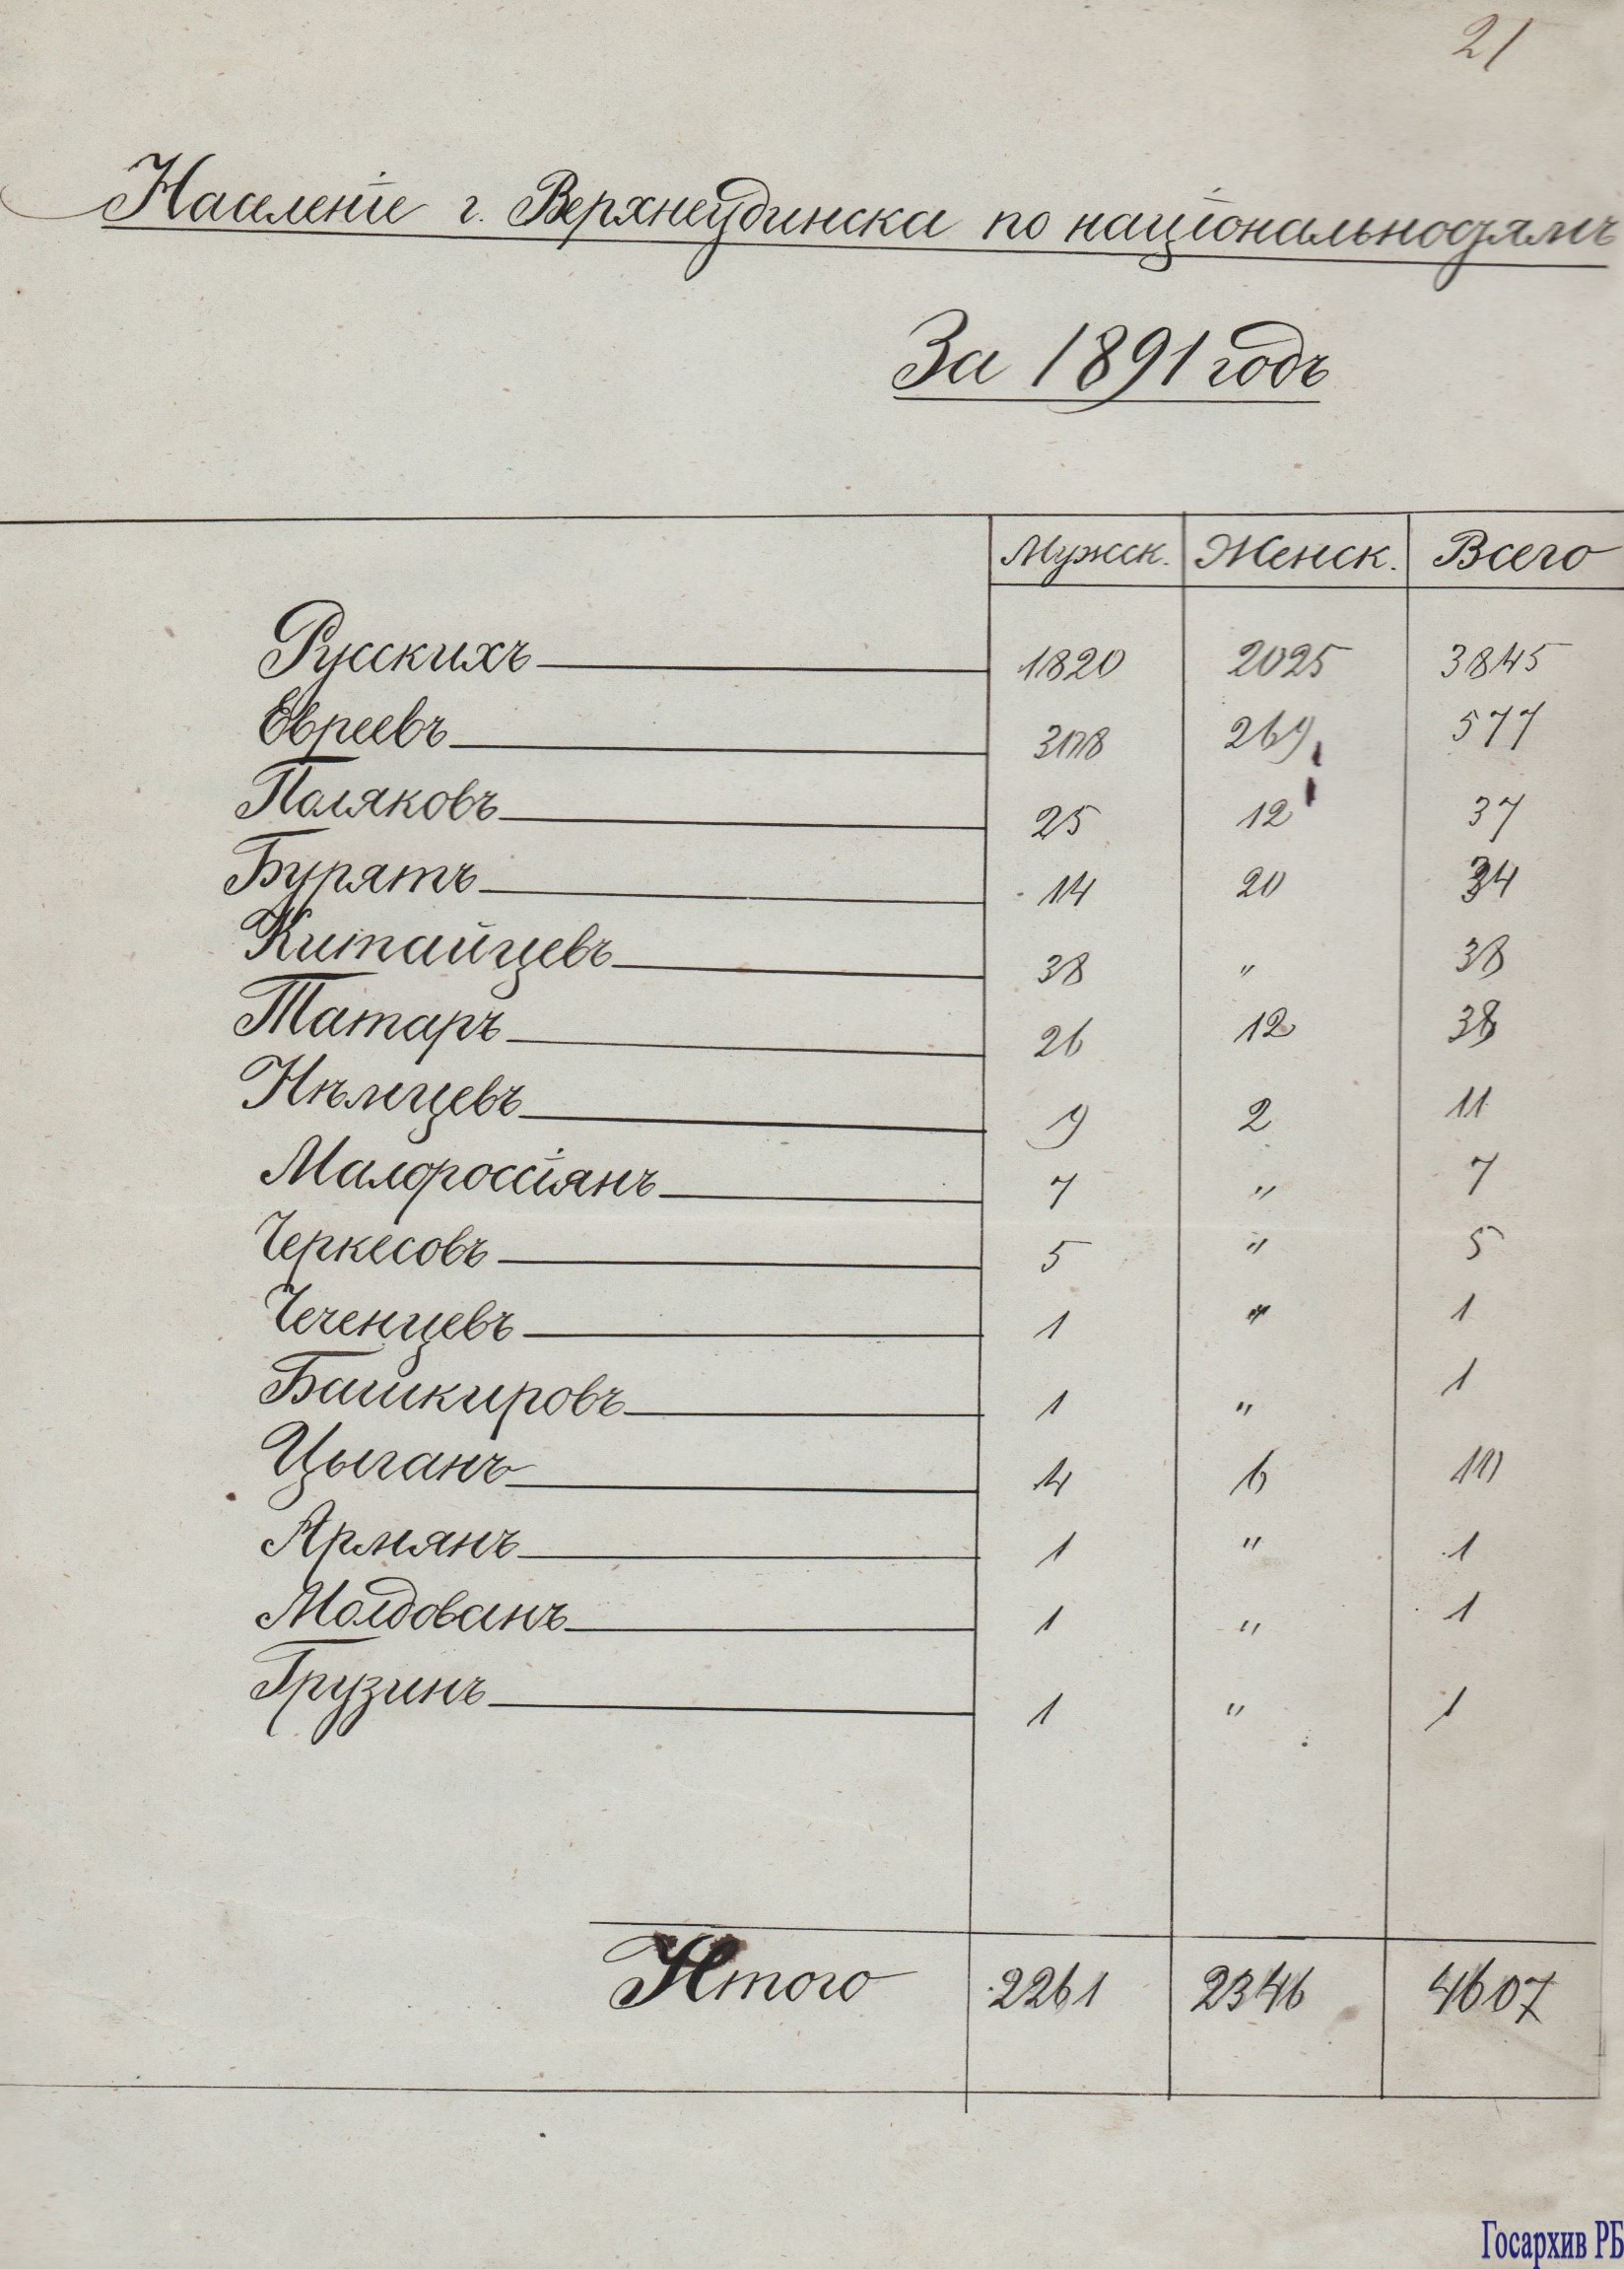 21
Населеніе г. Верхнеудинска по національностямъ
За 1891 годъ
Мужск. Женск. Всего
Русскихъ 1820 2025 3845
Евреевъ 308 269 577
Поляковъ 25 12 37
Бурятъ 14 20 34
Китайцевъ 38 " 38
Татаръ 26 12 38
Нѣмцевъ 9 2 11
Малороссіянъ 7 " 7
Черкесовъ 5 " 5
Чеченцевъ 1 " 1
Башкировъ 1 " 1
Цыганъ 4 6 10
Армянъ 1 " 1
Молдованъ 1 " 1
Грузинъ 1 " 1
Итого 2261 2346 4607
Госархив РБ